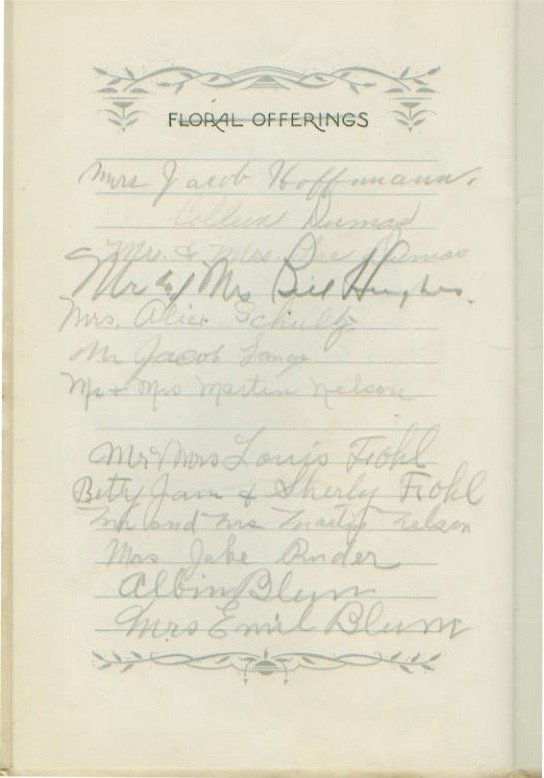 FLORAL OFFERINGS
Mrs Jacob Hoffmann.
Dumas
Mr. & Mrs. Dumas
Mr & Mrs Bill Hughes.
Mrs. Alice Schultz
Mr Jacob
Mr + Mrs Martin Nelson
Mr & Mrs Louis Frohl
Betty Jane & Sherly Frohl
Mr and Mrs Martin Nelson
Mrs Jake Ruder
Albin Blum
Mrs Emil Blum